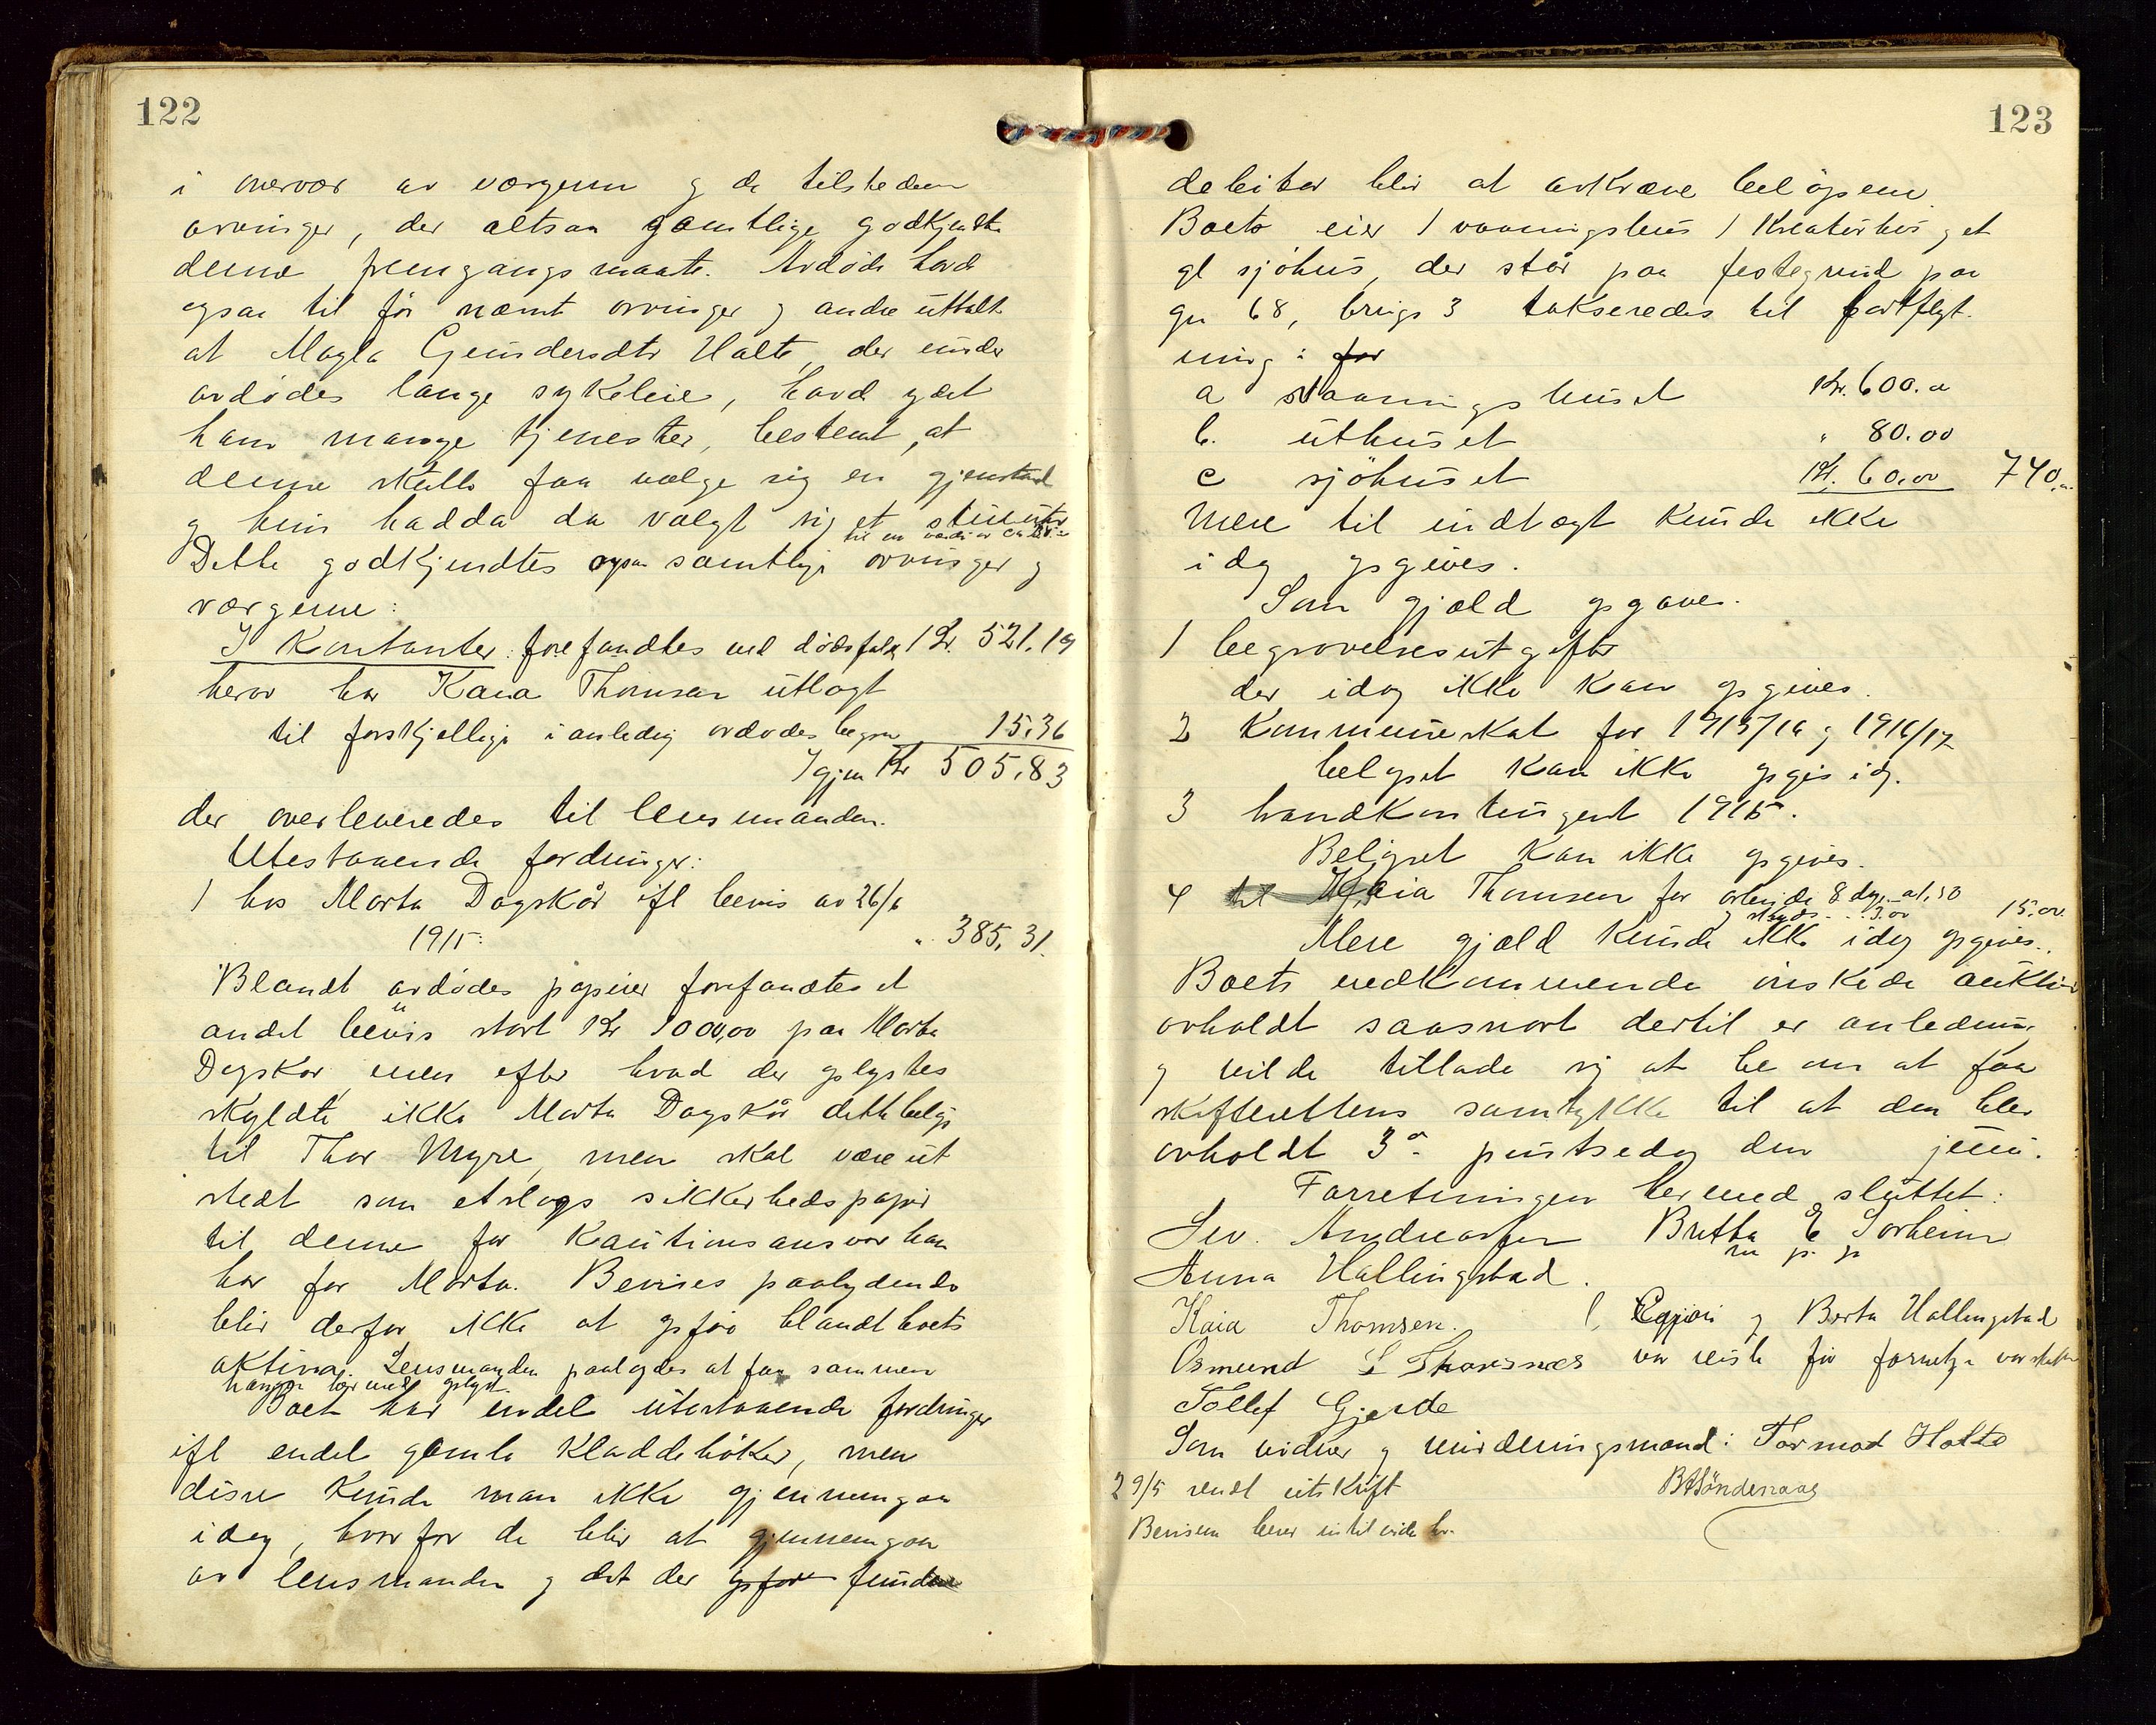 122
i overvær av værgerne og de tilstedeværende
arvinger, der altsaa samtlige godkjendte
denne fremgangsmaate. Avdøde havde
ogsaa til før nævnt arvinger og andre uttalt
at Magla Gundersdtr Halte, der under
avdødes lange sykeleie, havde ydet
ham mange tjenester, bestemt, at
denne skulle faa vælge sig en gjenstand
og hun hadda da valgt sig et stueuhr
til en værdi av ca
Dette godkjendtes ogsaa samtlige arvinger og
værgerne:
I Kontanter: forefandtes ved dødsfaldet Kr. 521.19
herav har Kaia Thomsen utlagt
til forskjellige i anledng avdødes begra 15.36
Igjen Kr 505.83
der overleveredes til lensmanden.
Utestaaende fordringer:
1 hos Marta Dagskår ifl bevis av 26/6
1915: " 385.31.
Blandt avdødes papirer forefandtes et
andet bevis stort Kr 1000,00 paa Marta
Dagskår, men efter hvad der oplystes
skyldte ikke Marta Dagskår dette beløp
til Thor Myre, men skal være ut
stedt som etslags sikkerhedspapir
til denne for Kautionsansvar han
har for Marta. Bevises paalydende
blir derfor ikke at opføre blandt boets
aktiva. Lensmanden paalagdes at faa sammen
hængen hermed oplyst.
Boet har endel utestaaende fordringer
ifl endel gamle Kladdebøker, men
disse kunde man ikke gjennemgaa
idag, hvorfor de blir at gjennemgaa
av lensmanden og det der opføre fundne
123
debitor blir at avkræve beløpene.
Boets eier 1 vaaningshus 1 Kreaturhus og et
gl sjøhus, der står paa festegrund paa
gn 68, brugs 3 takseredes til fortflyt.
ning: for
a Vaaningshuset Kr. 600.00
b. uthuset " 80.00
c sjøhuset Kr. 60.00 740.00
Mere til indtægt kunde ikke
idag opgives.
Som gjæld opgaves.
1 begravelsesutgifter
der idag ikke kan opgives.
2 Kommuneskat for 1915/16 og 1916/17
beløpet kan ikke opgis idg.
3 brandkontingent 1915.
Beløpet kan ikke opgives.
4 til Kaia Thomsen for arbeide 8 dage a 1.50
og skyds 3.00 15.00.
Mere gjæld kunde ikke idag opgives.
Boets vedkommende ønskede auktion
avholdt saasnart dertil er anledning
og vilde tillade sig at be om at faa
skifterettens samtykke til at den blev
avholdt 3die pintsedag den juni.
Forretningen hermed sluttet:
Sev. Andreassen Britha E Sørheim
m p. p
Anna Hallingstad.
Kaia Thomsen. og Berta Hallingstad
Osmund L Thorsnes var reist før forretn. var sluttet
Tollef Gjerde
Som vidner og vurderingsmænd: Tormod Halte
29/5 sendt utskrift BASöndenaae
Bevisen beror intil vide her.